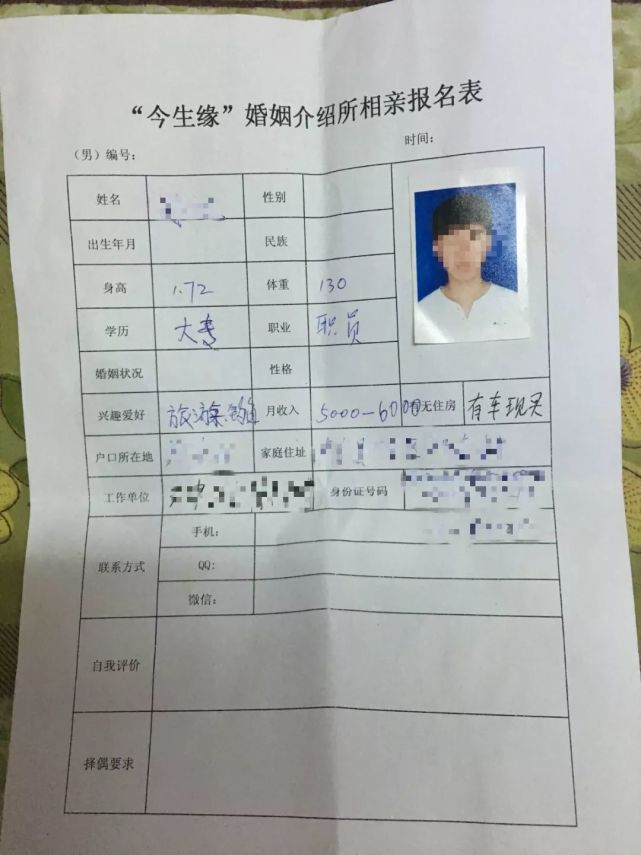 “今生缘”婚姻介绍所相亲报名表
（男）编号： 时间：
姓名 性别
出生年月 民族
身高 1.72 体重 130
学历 大专 职业 职员
婚姻状况 性格
兴趣爱好 旅游 钓鱼 月收入 5000-6000 有无住房 有车现买
户口所在地 家庭住址
工作单位 身份证号码
联系方式
手机：
QQ:
微信：
自我评价
择偶要求